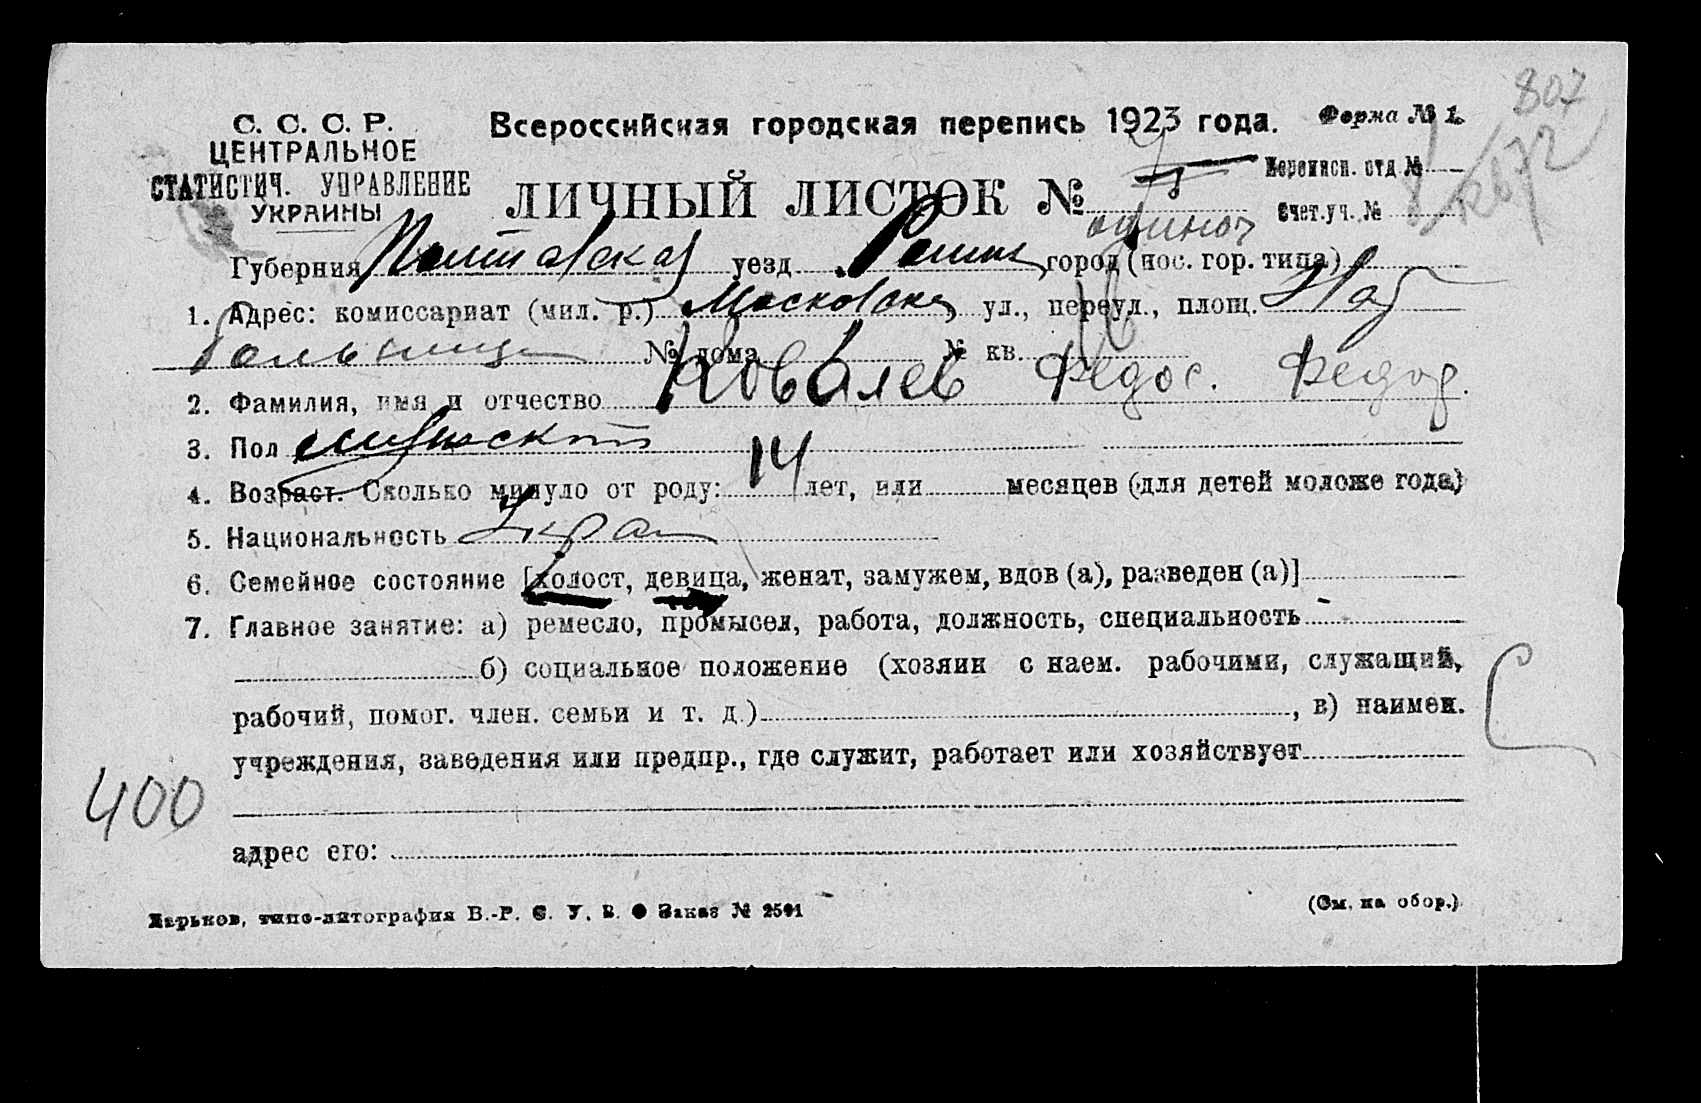 807
С. С. С. Р.
ЦЕНТРАЛЬНОЕ
СТАТИСТИЧ. УПРАВЛЕНИЕ
УКРАИНЫ
Всероссийская городская перепись 1923 года. Форма № 1.
ЛИЧНЫЙ ЛИСТОК №
Переписн. отд. №
Счет. уч. №
одиноч
Губерния Полтавская уезд город (пос. гор. типа)
1. Адрес: комиссариат (мил. р.) Московская ул., переул., площ.
№ дома № кв.
2. Фамилия, имя и отчество Ковалев Федос. Федор.
3. Пол мужской
4. Возраст. Сколько минуло от роду: 14 лет, или месяцев (для детей моложе года)
5. Национальность Укра
6. Семейное состояние [холост, девица, женат, замужем, вдов (а), разведен (а)]
7. Главное занятие: а) ремесло, промысел, работа, должность, специальность -
б) социальное положение (хозяин с наем. рабочими, служащий,
рабочий, помог. член. семьи и т. д.) , в) наимен.
учреждения, заведения или предпр., где служит, работает или хозяйствует
400
адрес его:
Харьков, типо-литография В.-Р. С. У. В. Заказ № 2591
(См. на обор.)